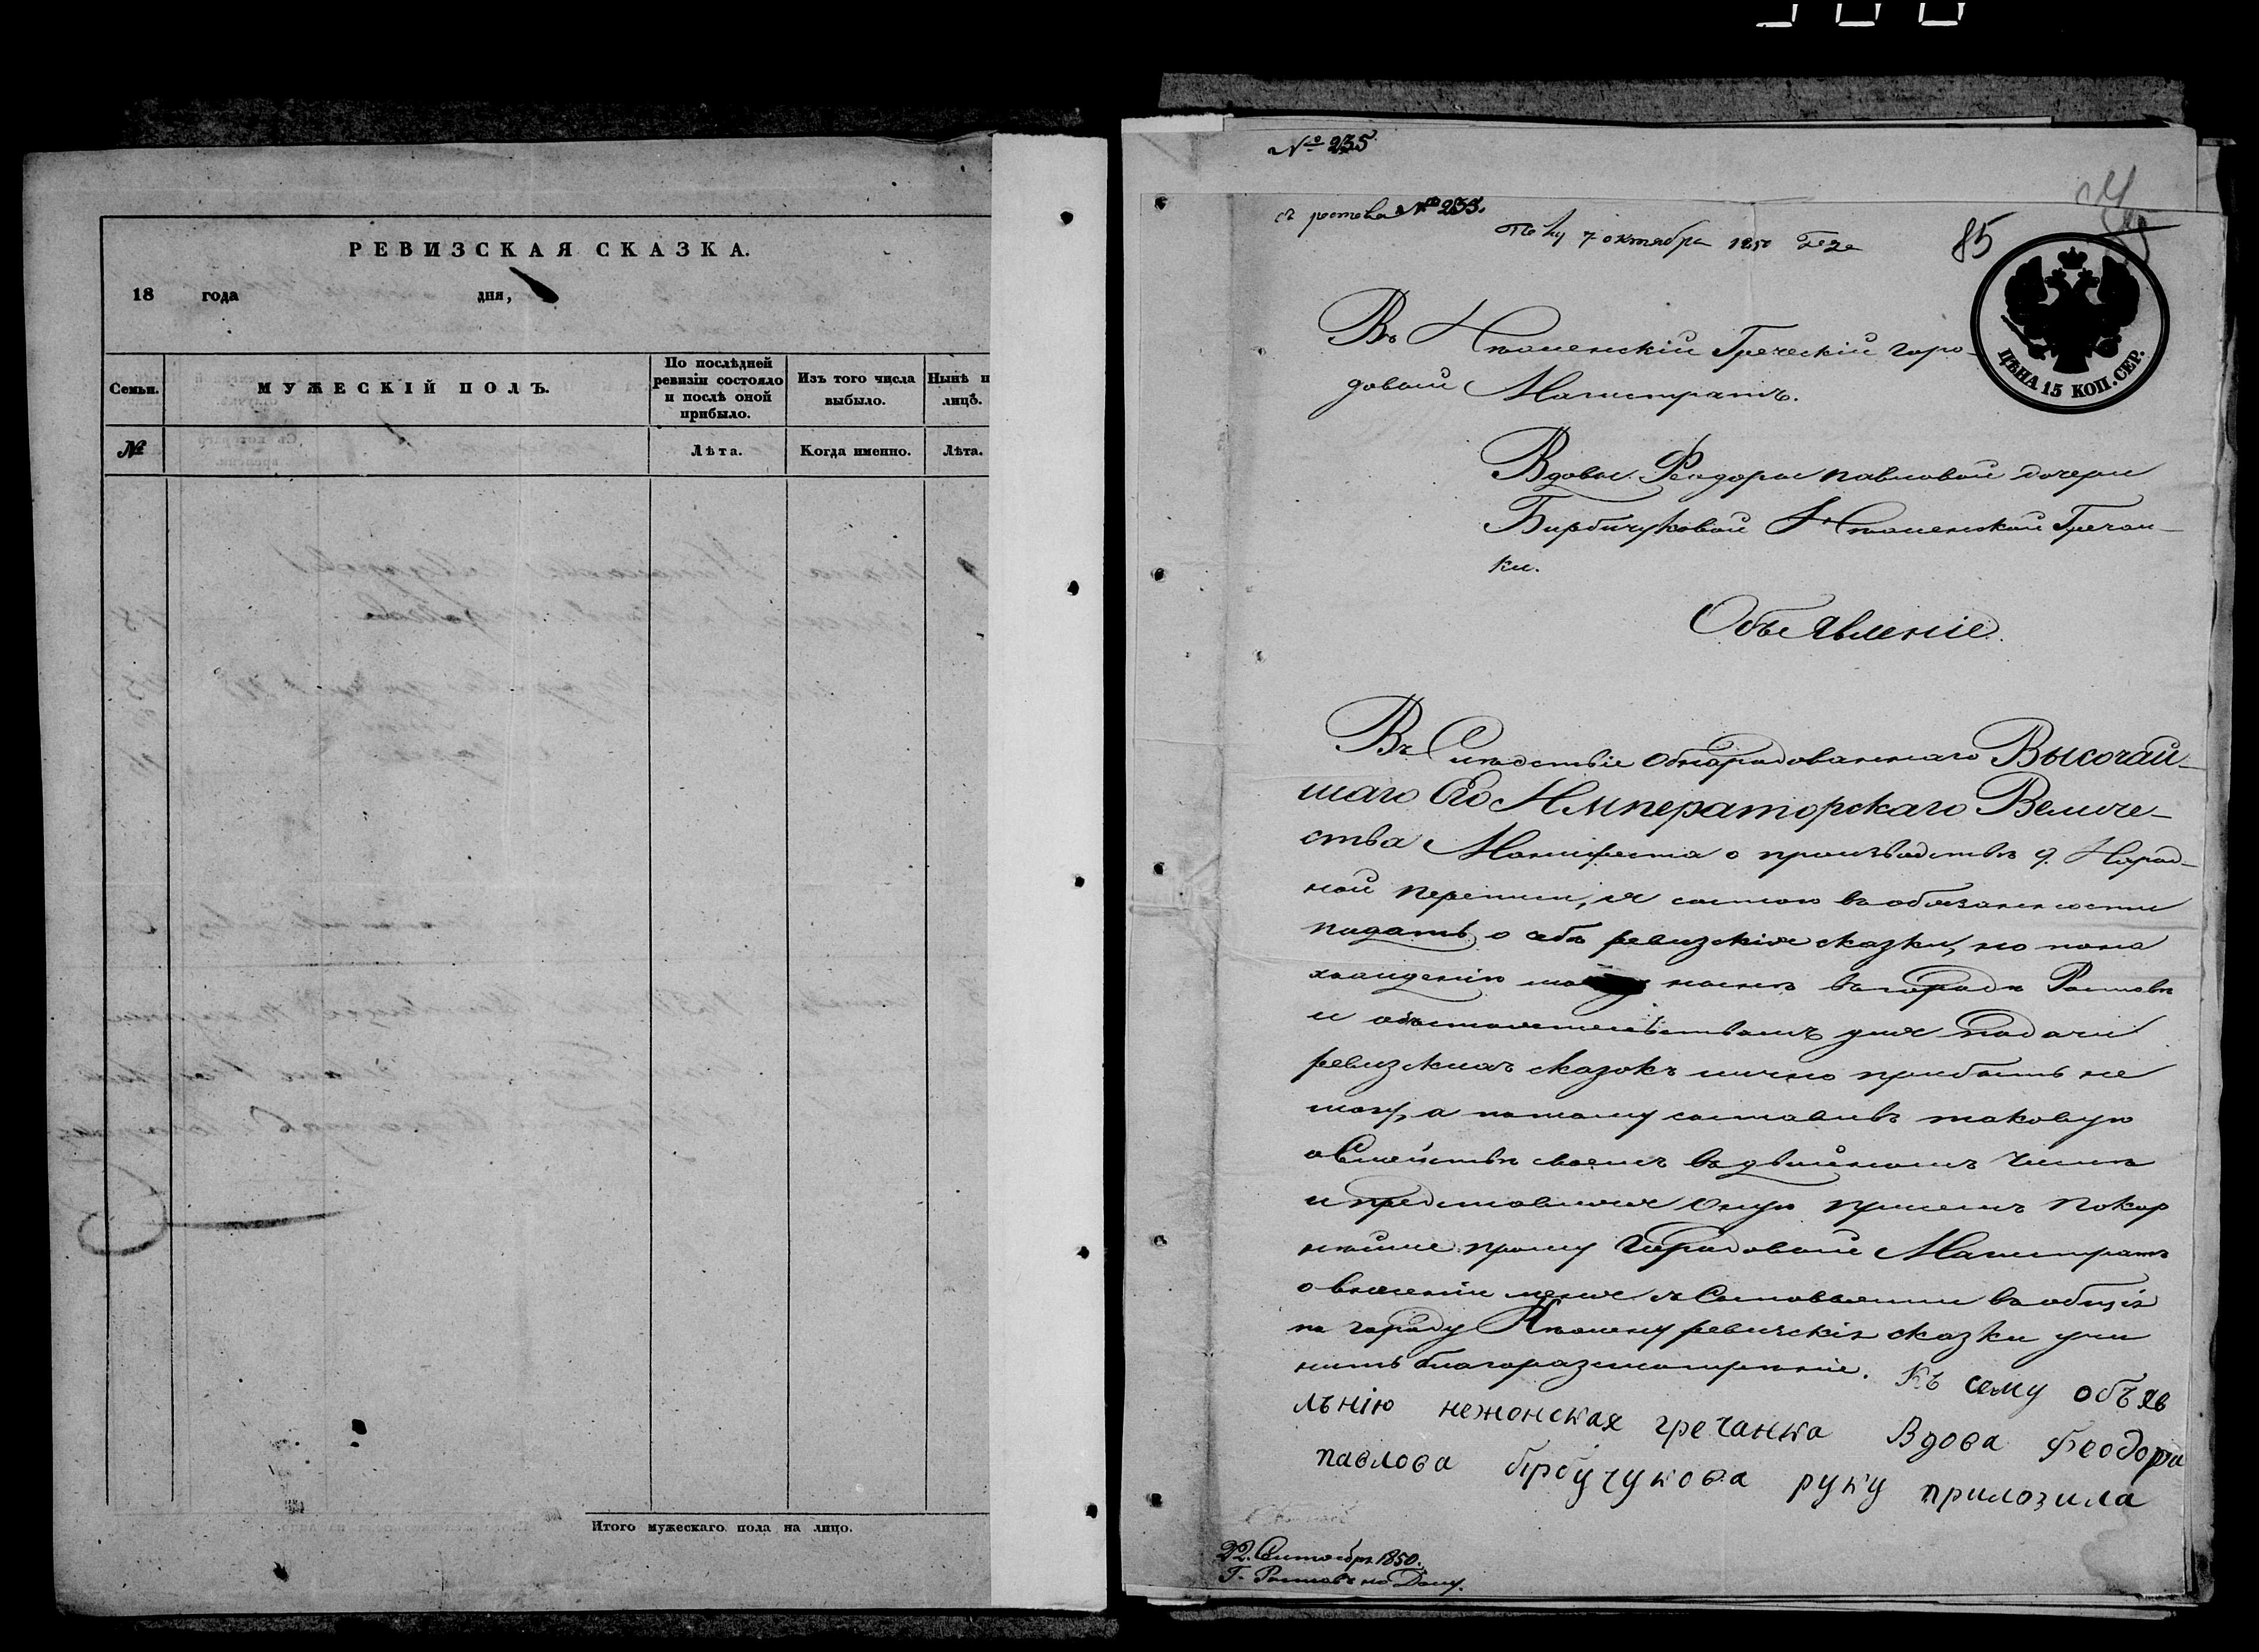 РЕВИЗСКАЯ СКАЗКА.
18 года дня,
Семьи.
МУЖЕСКІЙ ПОЛЪ.
По послѣдней ревизіи состояло и послѣ оной прибыло.
Изъ того числа выбыло.
Нынѣ н лицѣ.
№
Лѣта.
Когда именно.
Лѣта.
Итого мужескаго пола на лицо.
№ 235
съ ростова № 235.
7 октября 1850
85
ЦѢНА 15 КОП. СЕР.
Въ Нѣженскій Греческій горо-
довой Магистратъ.
Вдовы Феодоры павловой дочери
Бирбичуковой Нѣженской Гречан-
ки.
Объявленіе.
Въ Слѣдствіе обнародованнаго Высочай-
шаго Его Императорскаго Величе-
ства Манифеста о производствѣ 9. Народ-
ной переписи, я состою въ обязанности
подать о себѣ ревизскія сказки, но по на
хожденію моему нынѣ въ городѣ Ростовѣ
и обстоятельствамъ для подачи
ревизскихъ сказокъ лично прибыть не
могу, а потому составивъ таковую
о Семействѣ своемъ въ двойномъ числѣ
и представляя оную присемъ покор
нѣйше прошу Городовой Магистратъ
о внесеніи меня въ общія
по городу Нѣжену ревизскія сказки учи
нить благоразсмотреніе. Къ сему объяв
лънію нежонская гречанка Вдова феодора
павлова бірбучукова руку прилозила
22. Сентября 1850.
Г. Ростовъ на Дону.